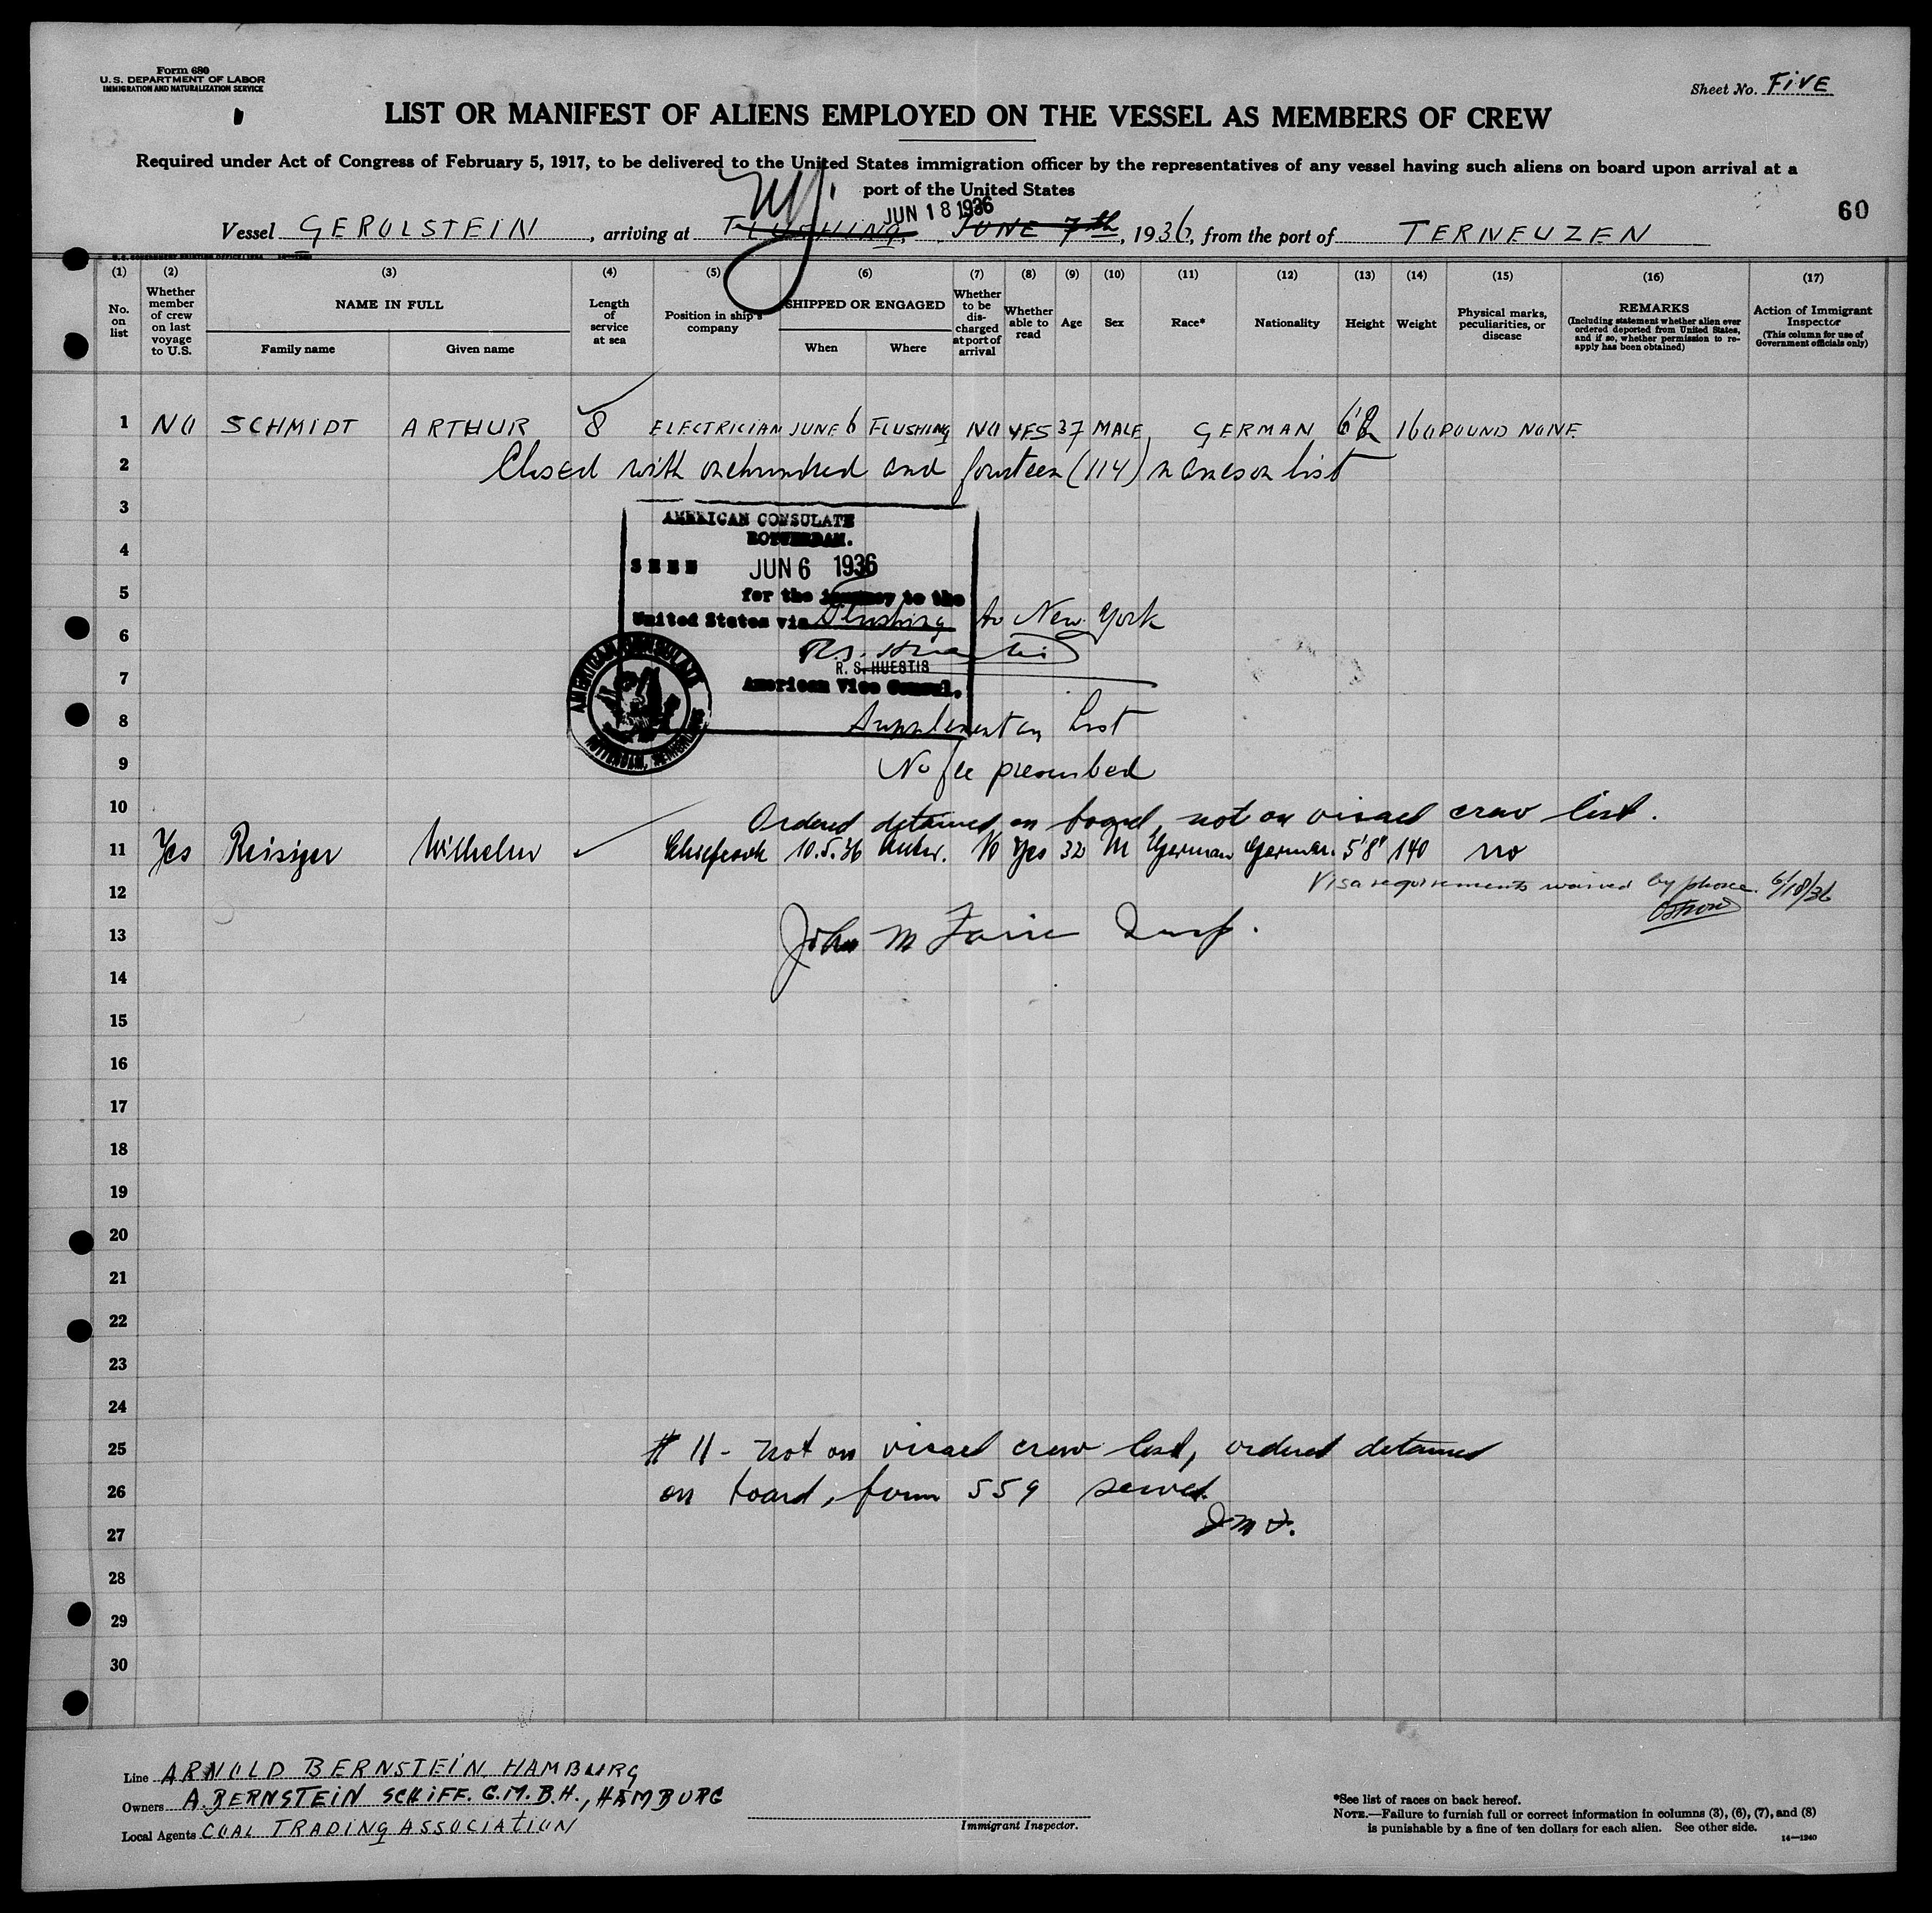 Form 680
U. S. DEPARTMENT OF LABOR
IMMIGRATION AND NATURALIZATION SERVICE
Sheet No. FiVE
LIST OR MANIFEST OF ALIENS EMPLOYED ON THE VESSEL AS MEMBERS OF CREW
Required under Act of Congress of February 5, 1917, to be delivered to the United States immigration officer by the representatives of any vessel having such aliens on board upon arrival at a
port of the United States
60
N.Y. JUN 18 1936
Vessel GEROLSTEIN, arriving at FLUSHING, JUNE 7th, 1936, from the port of TERNEUZEN
(1) (2) (3) (4) (5) (6) (7) (8) (9) (10) (11) (12) (13) (14) (15) (16) (17)
No. on list
Whether member of crew on last voyage to U.S.
NAME IN FULL
Family name
Given name
Length of service at sea
Position in ship's company
SHIPPED OR ENGAGED
When
Where
Whether to be discharged at port of arrival
Whether able to read
Age
Sex
Race*
Nationality
Height
Weight
Physical marks, peculiarities, or disease
REMARKS
(Including statement whether alien ever ordered deported from United States, and if so, whether permission to reapply has been obtained)
Action of Immigrant Inspector
(This column for use of Government officials only)
1 NO SCHMIDT ARTHUR 8 ELECTRICIAN JUNE 6 FLUSHING NO YES 37 MALE GERMAN 6'2 160 POUND NONE
2 Closed with onehundred and fourteen (114) names on list
3
AMERICAN CONSULATE
ROTTERDAM.
4
SEEN JUN 6 1936
5
for the journey to the
United States via Flushing to New York
6
R. S. HUESTIS
7
American Vice Consul.
AMERICAN CONSULATE
ROTTERDAM, NETHERLANDS
8 Supplementary list
9 No fee prescribed
10 Ordered detained on board, not on visaed crew list.
11 Yes Reisiger Wilhelm Chiefcook 10.5.36 Antw. No Yes 32 M German German 5'8" 140 no
12 Visa requirements waived by phone 6/18/36
Ostrow
13 John M Insp.
14
15
16
17
18
19
20
21
22
23
24
25 # 11 - not on visaed crew list, ordered detained
26 on board, form 559 served.
27 J M F.
28
29
30
Line ARNOLD BERNSTEIN, HAMBURG
Owners A. BERNSTEIN SCHIFF. G.M.B.H., HAMBURG
Local Agents COAL TRADING ASSOCIATION
Immigrant Inspector.
*See list of races on back hereof.
NOTE.—Failure to furnish full or correct information in columns (3), (6), (7), and (8)
is punishable by a fine of ten dollars for each alien. See other side.
14—1240